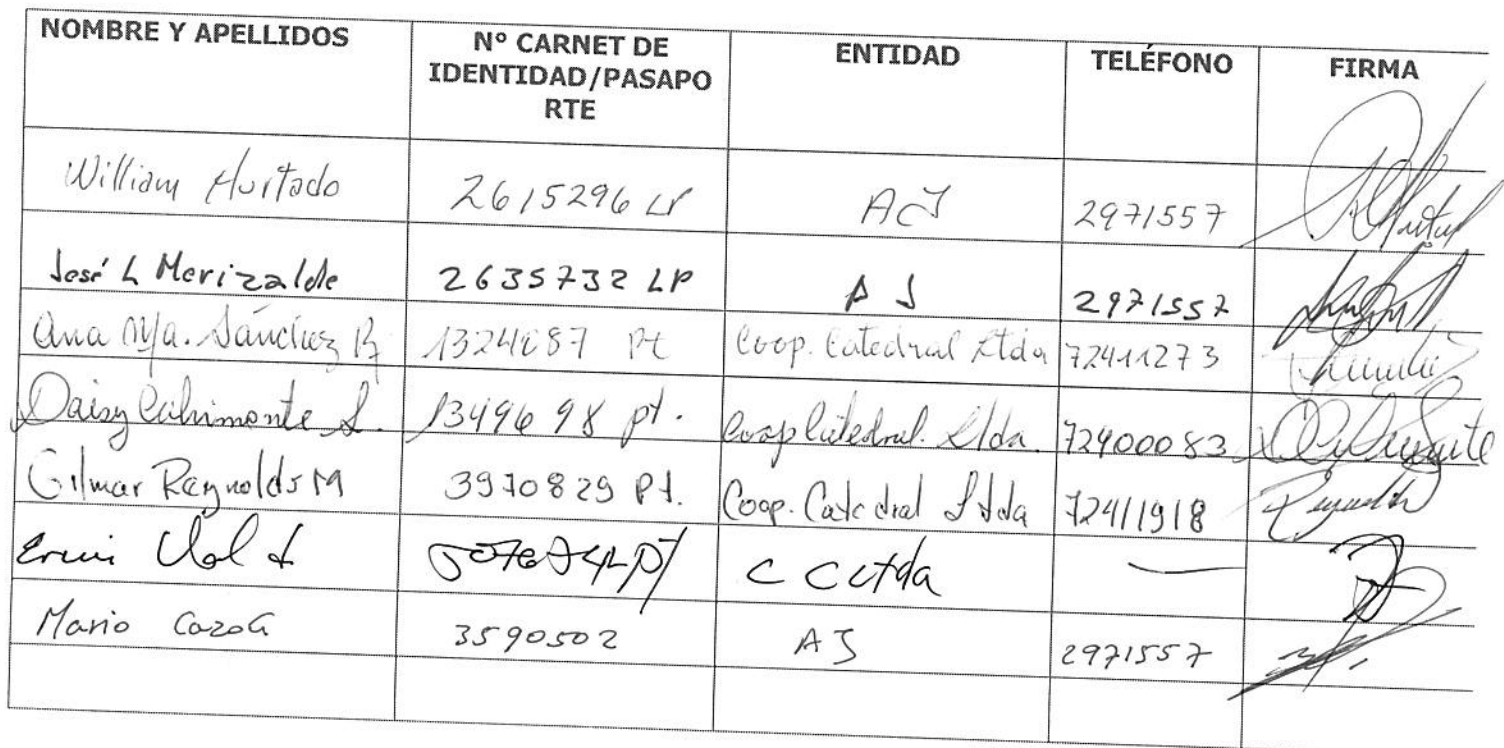 NOMBRE Y APELLIDOS
Nº CARNET DE
IDENTIDAD/PASAPO
RTE
ENTIDAD
TELÉFONO
FIRMA
William Hurtado 2615296 LP AJ 2971557
José L Merizalde 2635732 LP AJ 2971557
Ana Ma. Sánchez R. 1324087 Pt Coop. Catedral Ltda 72411273
Daisy 1349698 pt. Coop Catedral. Ltda. 72400083
Gilmar Reynolds M 3970829 Pt. Coop. Catedral Ltda 72411918
C C Ltda —
Mario 3590502 AJ 2971557